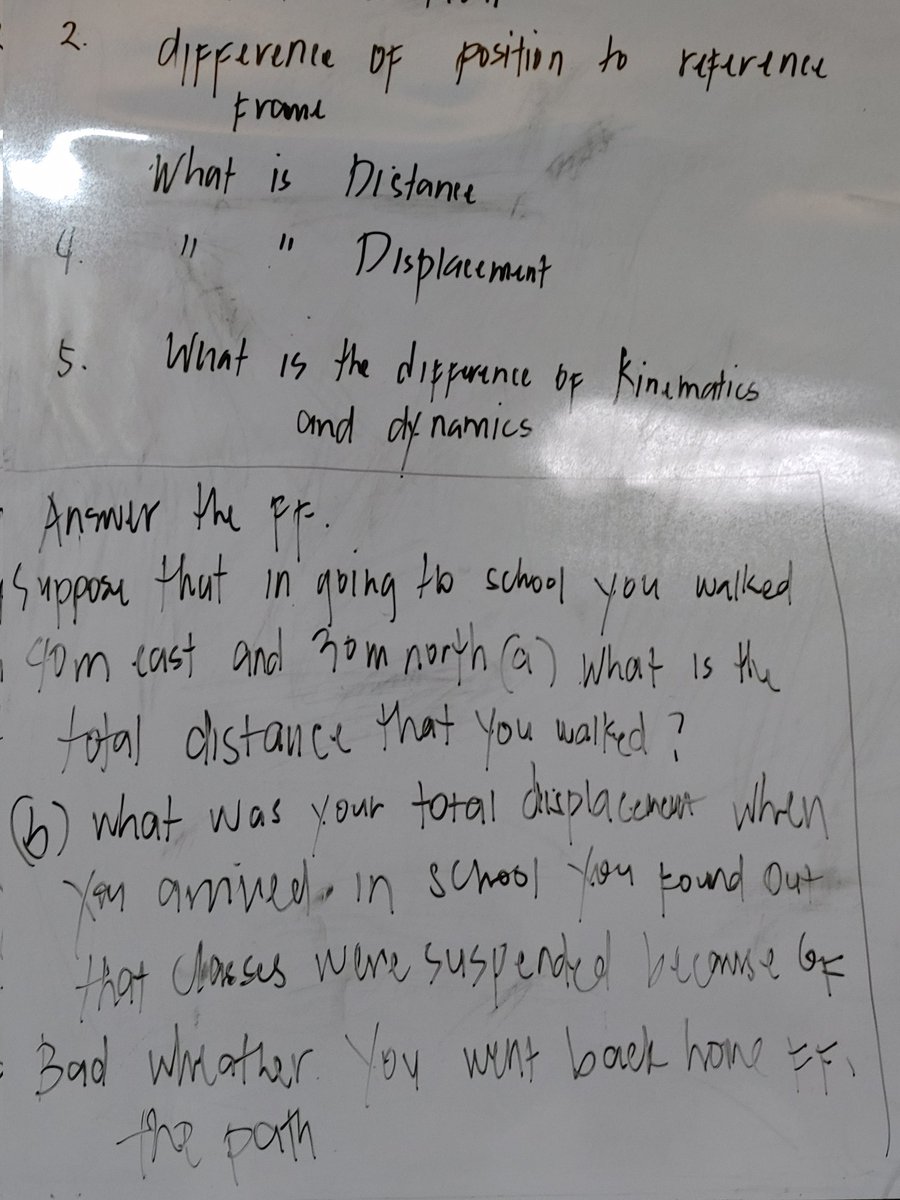 2. difference of position to reference
frame
What is Distance
4. " " Displacement
5. What is the difference of Kinematics
and dynamics
Answer the FF.
Suppose that in going to school you walked
40m east and 30m north (a) What is the
total distance that you walked?
(b) what was your total displacement when
you arrived. in school you found out
that classes were suspended because of
Bad wheather. You went back home FF.
the path